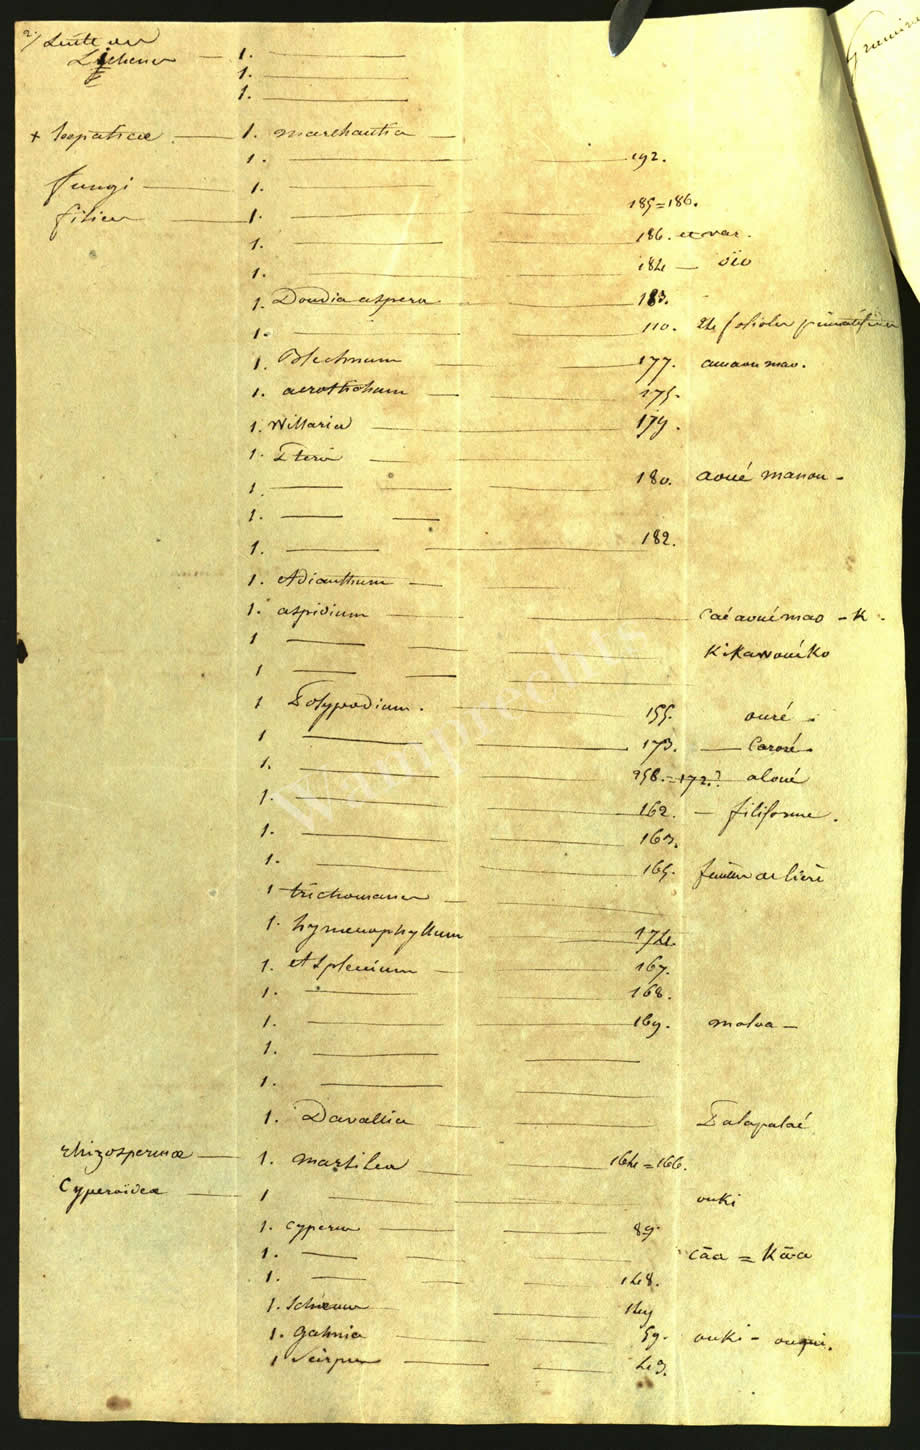 2/ Suite des
Lichenes — 1. —
1. —
1. —
+ hepaticae — 1. marchantia —
1. — 192.
fungi — 1. —
filices — 1. — 185 = 186.
1. — 186. et var.
1. — 184 — oïo
1. Doodia aspera — 183.
1. — 110. 24 folioles
1. Blechnum — 177. amaou mao.
1. acrostichum — 175.
1. Vittaria — 179.
1. Pteris —
1. — 180. aoué manou -
1. — —
1. — 182.
1. Adianthum —
1. aspidium — Caé aoué mao - K.
1 — Kikawouéko
1 — —
1 Polypodium. — 155. ouré
1 — 173. — Caroré
1. — 258. = 172? aloué
1. — 162. — filiforme.
1. — 163.
1. — 165. de lière
1 trichomanes —
1. hymenophyllum — 174.
1. Asplenium — 167.
1. — 168.
1. — 169. maloa —
1. —
1. —
1. Davallia — Palapalaé
rhizospermae — 1. marsilea — 164 = 166.
Cyperoïdeae — 1 — ouki
1. cyperus — 89.
1. — cāa = Kāva
1. — 148.
1. Schœnus — 149
1. gahnia — 59. ouki - ouqui.
1 Scirpus — 43.
Gramine
Wamprechts